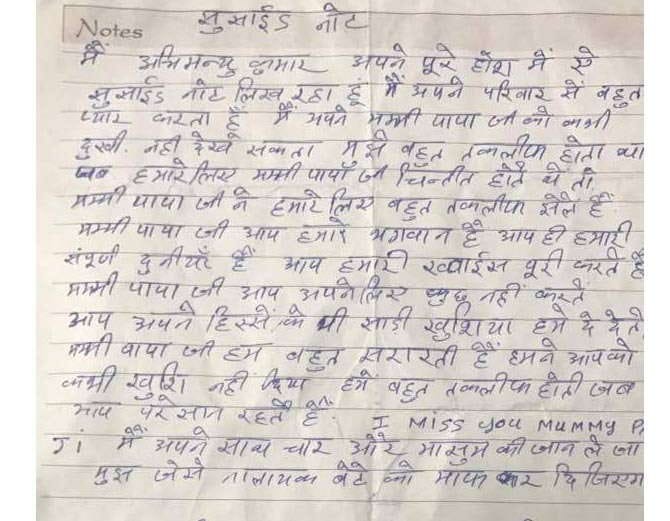 सुसाईड नोट
Notes
मैं अभिमन्यु कुमार अपने पूरे होश में ऐ
सुसाईड नोट लिख रहा हूं मैं अपने परिवार से बहुत
प्यार करता हूँ मैं अपने मम्मी पापा जी को कभी
दुखी नहीं देख सकता मुझे बहुत तकलीफ होता था
जब हमारे लिए मम्मी पापा जी चिन्तीत होते थे तो
मम्मी पापा जी ने हमारे लिए बहुत तकलीफ झेले हैं
मम्मी पापा जी आप हमारे भगवान हैं आप ही हमारी
संपूर्ण दुनीयाँ हैं आप हमारी ख्वाईस पूरी करते हैं
मम्मी पापा जी आप अपने लिए कुछ नहीं करते
आप अपने हिस्से के भी साड़ी खुशिया हमे दे देते
मम्मी पापा जी हम बहुत सरारती हैं हमने आपको
कभी खुशि नहीं दिया हमें बहुत तकलीफ होती जब
आप परेसान रहते हैं. I MISS you MUMMY P
Ji मैं अपने साथ चार और मासुम की जान ले जा
मुझ जेसे नालायक बेटे को माफ कर दिजिएगा